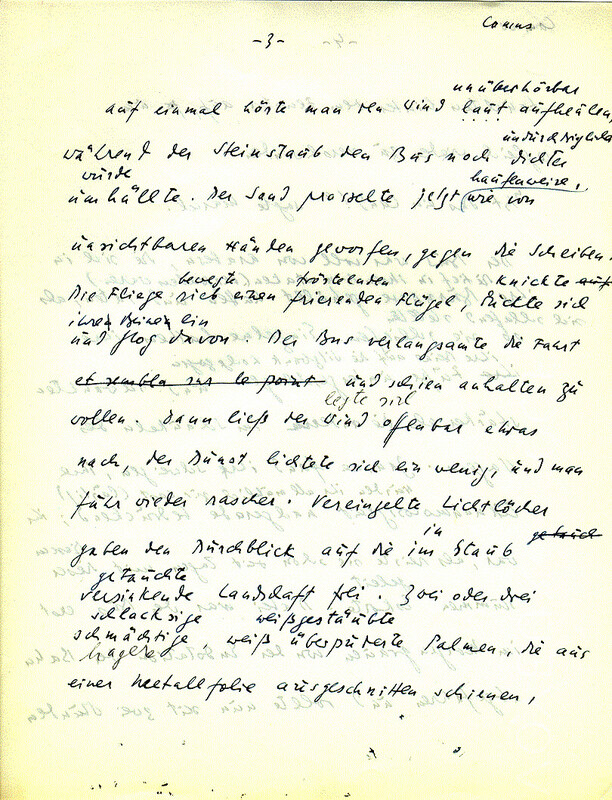 Camus
-3-
unüberhörbar
auf einmal hörte man den Wind laut aufheulen,
undurchdringlicher
während der Steinstaub den Bus noch dichter
würde haufenweise,
umhüllte. Der Sand prasselte jetzt wie von
unsichtbaren Händen geworfen, gegen die Scheiben.
bewegte fröstelnden knickte auf
Die Fliege rieb einen frierenden Flügel, duckte sich
ihren Beinen ein
und flog davon. Der Bus verlangsamte die Fahrt
et sembla sur le point und schien anhalten zu
legte sich
wollen. Dann ließ der Wind offenbar etwas
nach, der Dunst lichtete sich ein wenig, und man
fuhr wieder rascher. Vereinzelte Lichtlöcher
in getauch
gaben den Durchblick auf die im Staub
getauchte
versinkende Landschaft frei. Zwei oder drei
schlacksige weißgestäubte
schmächtige, weiß überpuderte Palmen, die aus
hagere
einer Metallfolie ausgeschnitten schienen,